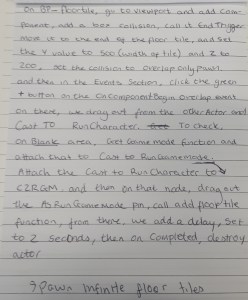 On BP-Floortile, go to viewport and add com-
ponent, add a box collision, call it End Trigger
Move it to the end of the floor tile, and set
the Y value to 500 (width of tile) and Z to
200, set the collision to Overlap only Pawn,
and then in the Events Section, click the green
+ button on the OnComponentBegin Overlap event
on there, we drag out from the other Actor and
Cast TO RunCharacter. To check,
on Blank area, Get Game mode function and
attach that to Cast to RunGamemode,
Attach the Cast to RunCharacter to
C2RGM, and then on that node, drag out
the As RunGameMode pin, call add floor tile
function, from there, we add a delay, Set
to 2 seconds, then on Completed, destroy
actor
Spawns infinite floor tiles